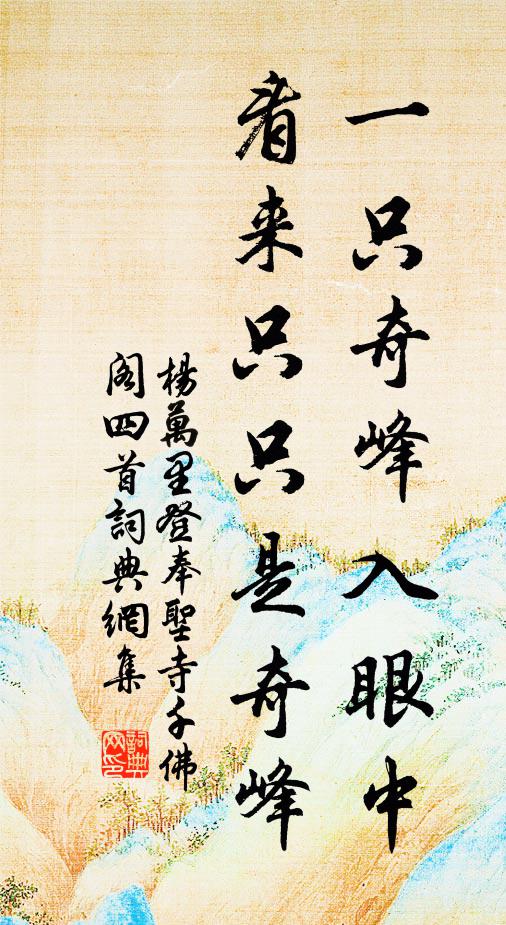 一只奇峰入眼中
看来只只是奇峰
楊萬里登奉聖寺千佛
閣四首詞典網集
詞典
网印